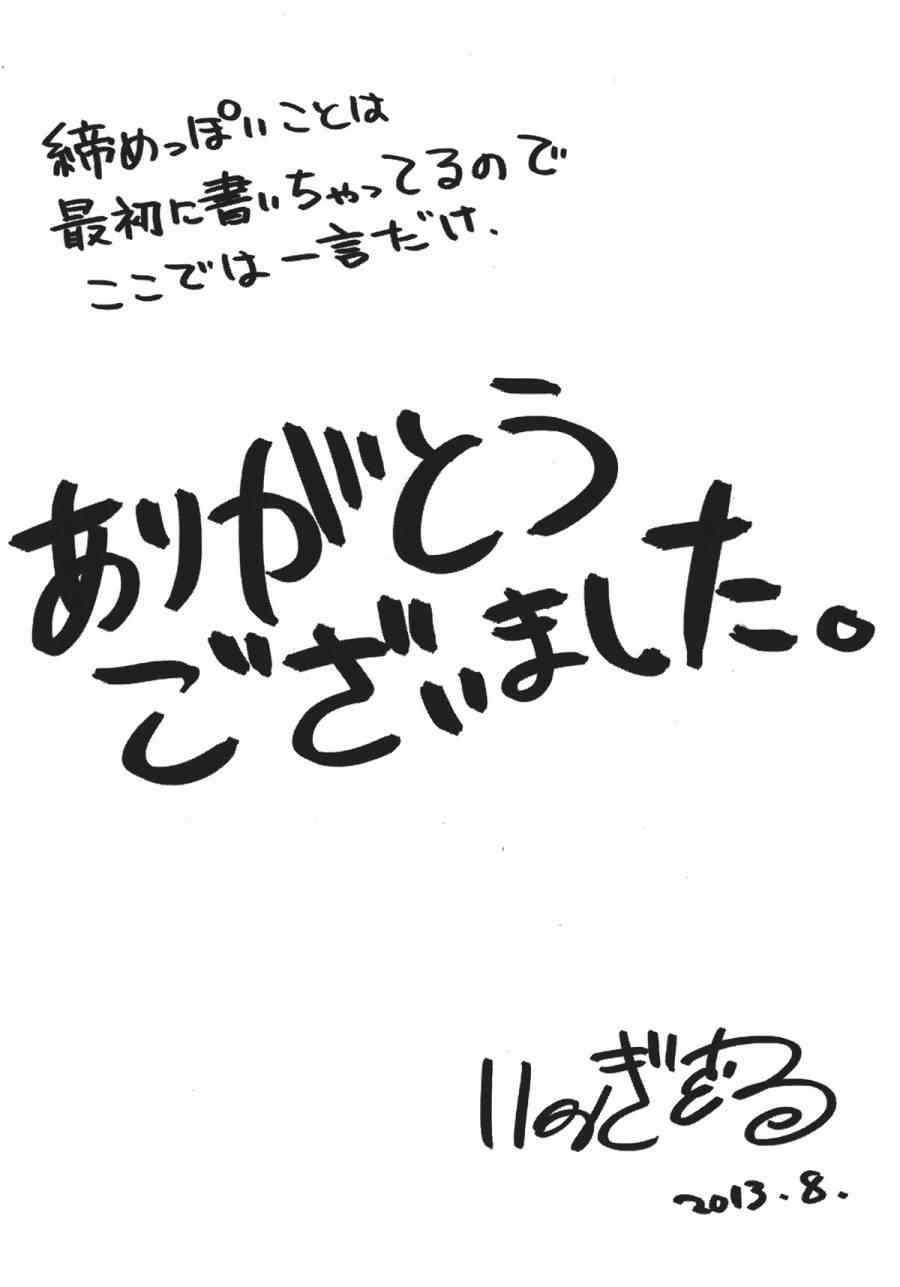 締めっぽいことは
最初に書いちゃってるので
ここでは一言だけ、
ありがとう
ございました。
2013.8.